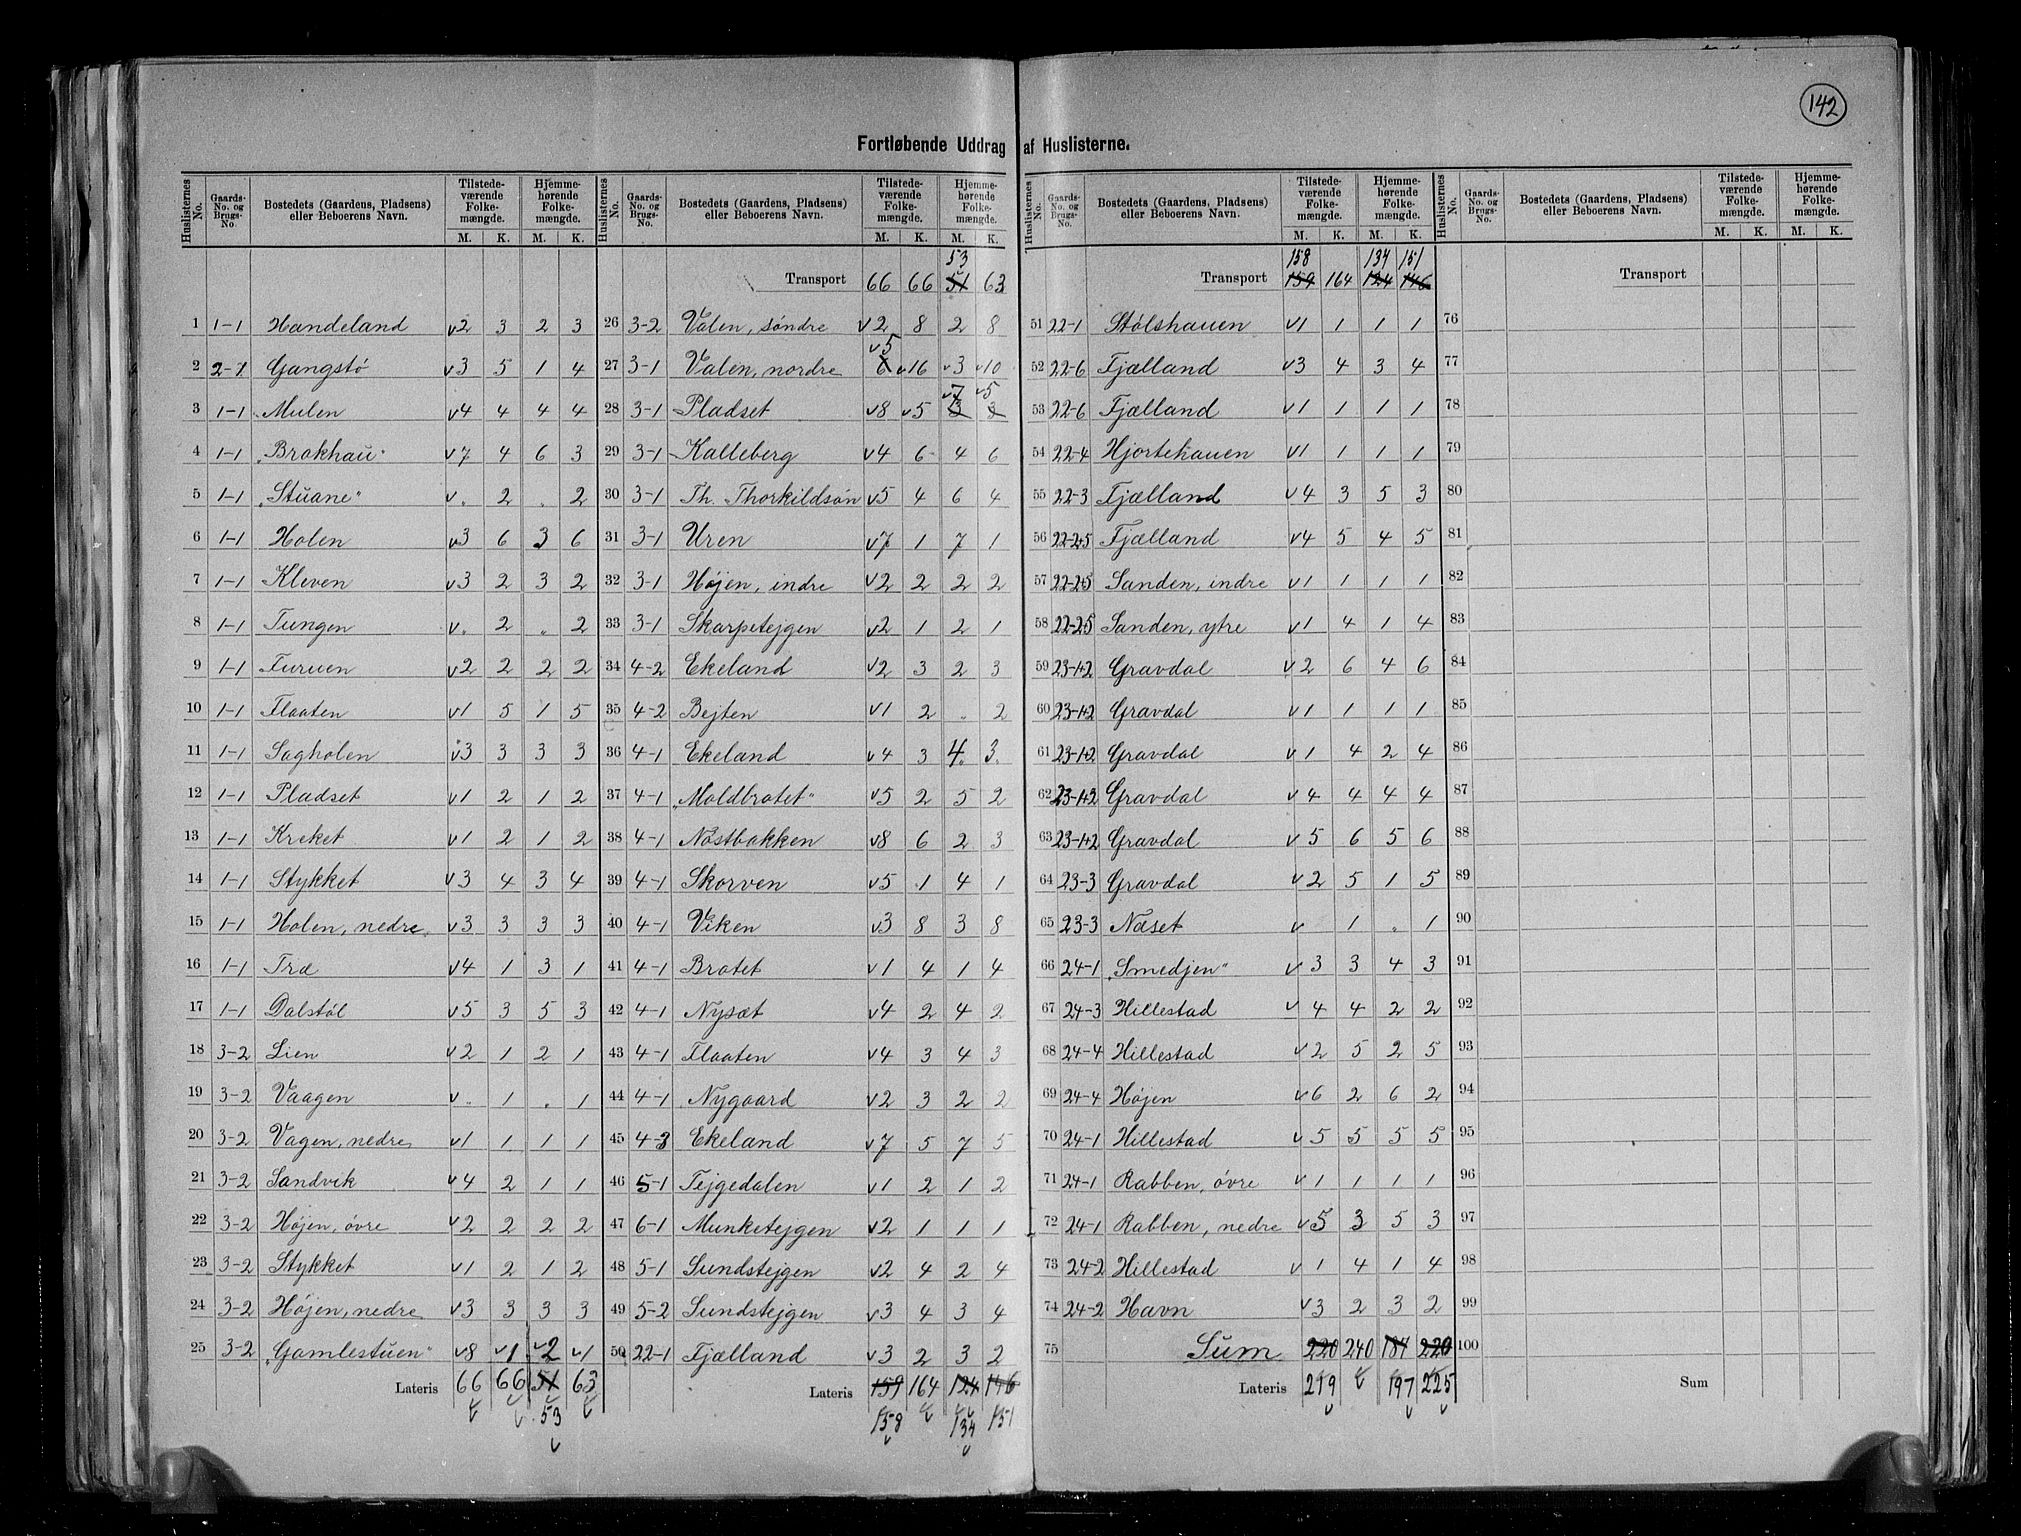 142
Fortløbende Uddrag af Huslisterne.
Huslisternes No. | Gaards-No. og Brugs-No. | Bostedets (Gaardens, Pladsens) eller Beboerens Navn. | Tilstedeværende Folkemængde. M. K. | Hjemmehørende Folkemængde. M. K.
1 1-1 Handeland v2 3 2 3
2 2-1 Gangstø v3 5 1 4
3 1-1 Mulen v4 4 4 4
4 1-1 „Brakhau" v7 4 6 3
5 1-1 „Stuane" v. 2 . 2
6 1-1 Holen v3 6 3 6
7 1-1 Kleven v3 2 3 2
8 1-1 Tungen v. 2 „ 2
9 1-1 Furuen v2 2 2 2
10 1-1 Flaaten v1 5 1 5
11 1-1 Sagholen v3 3 3 3
12 1-1 Pladset v1 2 1 2
13 1-1 Kreket v1 2 1 2
14 1-1 Stykket v3 4 3 4
15 1-1 Holen, nedre v3 3 3 3
16 1-1 Træ v4 1 3 1
17 1-1 Dalstøl v5 3 5 3
18 3-2 Lien v2 1 2 1
19 3-2 Vaagen v. 1 . 1
20 3-2 Vagen, nedre v1 1 1 1
21 3-2 Sandvik v4 2 1 1
22 3-2 Højen, øvre v2 2 2 2
23 3-2 Stykket v1 2 1 2
24 3-2 Højen, nedre v3 3 3 3
25 3-2 „Gamlestuen" v8 v1 v2 v1
Lateris 66 66 51 63
53
Huslisternes No. | Gaards-No. og Brugs-No. | Bostedets (Gaardens, Pladsens) eller Beboerens Navn. | Tilstedeværende Folkemængde. M. K. | Hjemmehørende Folkemængde. M. K.
53
Transport 66 66 51 63
26 3-2 Valen, søndre v2 8 2 8
v5
27 3-1 Valen, nordre 6 v16 v3 v10
v7 v5
28 3-1 Pladset v8 v5 3 3
29 3-1 Kalleberg v4 6 4 6
30 3-1 Th. Thorkildsøn v5 4 6 4
31 3-1 Uren v7 1 7 1
32 3-1 Højen, indre v2 2 2 2
33 3-1 Skarpetejgen v2 1 2 1
34 4-2 Ekeland v2 3 2 3
35 4-2 Bejten v1 2 . 2
36 4-1 Ekeland v4 3 4. 3.
37 4-1 „Moldbratet" v5 2 5 2
38 4-1 Nøstbakken v8 6 2 3
39 4-1 Skorven v5 1 4 1
40 4-1 Viken v3 8 3 8
41 4-1 Bratet v1 4 1 4
42 4-1 Nysæt v4 2 4 2
43 4-1 Flaaten v4 3 4 3
44 4-1 Nygaard v2 3 2 2
45 4-3 Ekeland v7 5 7 5
46 5-1 Tejgedalen v1 2 1 2
47 6-1 Munketejgen v2 1 1 1
48 5-1 Sundstejgen v2 4 2 4
49 5-2 Sundstejgen v3 4 3 4
50 22-1 Fjælland v3 2 3 2
Lateris 159 164 124 146
158 134 151
Huslisternes No. | Gaards-No. og Brugs-No. | Bostedets (Gaardens, Pladsens) eller Beboerens Navn. | Tilstedeværende Folkemængde. M. K. | Hjemmehørende Folkemængde. M. K.
158 134 151
Transport 159 164 124 146
51 22-1 Stølshauen v1 1 1 1
52 22-6 Fjælland v3 4 3 4
53 22-6 Fjælland v1 1 1 1
54 22-4 Hjortehauen v1 1 1 1
55 22-3 Fjælland v4 3 5 3
56 22-2+5 Fjælland v4 5 4 5
57 22-2+5 Sanden, indre v1 1 1 1
58 22-2+5 Sanden, ytre v1 4 1 4
59 23-1+2 Gravdal v2 6 4 6
60 23-1+2 Gravdal v1 1 1 1
61 23-1+2 Gravdal v1 4 2 4
62 23-1+2 Gravdal v4 4 4 4
63 23-1+2 Gravdal v5 6 5 6
64 23-3 Gravdal v2 5 1 5
65 23-3 Næset v 1 . 1
66 24-1 „Smedjen" v3 3 4 3
67 24-3 Hillestad v4 4 2 2
68 24-4 Hillestad v2 5 2 5
69 24-4 Højen v6 2 6 2
70 24-1 Hillestad v5 5 5 5
71 24-1 Rabben, øvre v1 1 1 1
72 24-1 Rabben, nedre v5 3 5 3
73 24-2 Hillestad v1 4 1 4
74 24-2 Havn v3 2 3 2
75 Sum 220 240 187 220
Lateris 219 197 225
Huslisternes No. | Gaards-No. og Brugs-No. | Bostedets (Gaardens, Pladsens) eller Beboerens Navn. | Tilstedeværende Folkemængde. M. K. | Hjemmehørende Folkemængde. M. K.
Transport
76
77
78
79
80
81
82
83
84
85
86
87
88
89
90
91
92
93
94
95
96
97
98
99
100
Sum